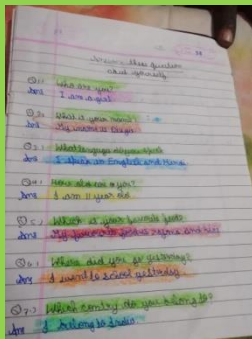 these question
about yourself
Q.1: Who are you?
Ans I am a girl
Q.2: What is your name?
Ans My name is
Q.3: What languages do you speak
Ans I speak in English and Hindi
Q.4: How old are you?
Ans I am 11 year old
Q.5: Which is your favorite food
Ans My favorite food is rajma and rice
Q.6: Where did you go yesterday?
Ans I went to school yesterday.
Q.7: Which country do you belong to?
Ans I belong to India.